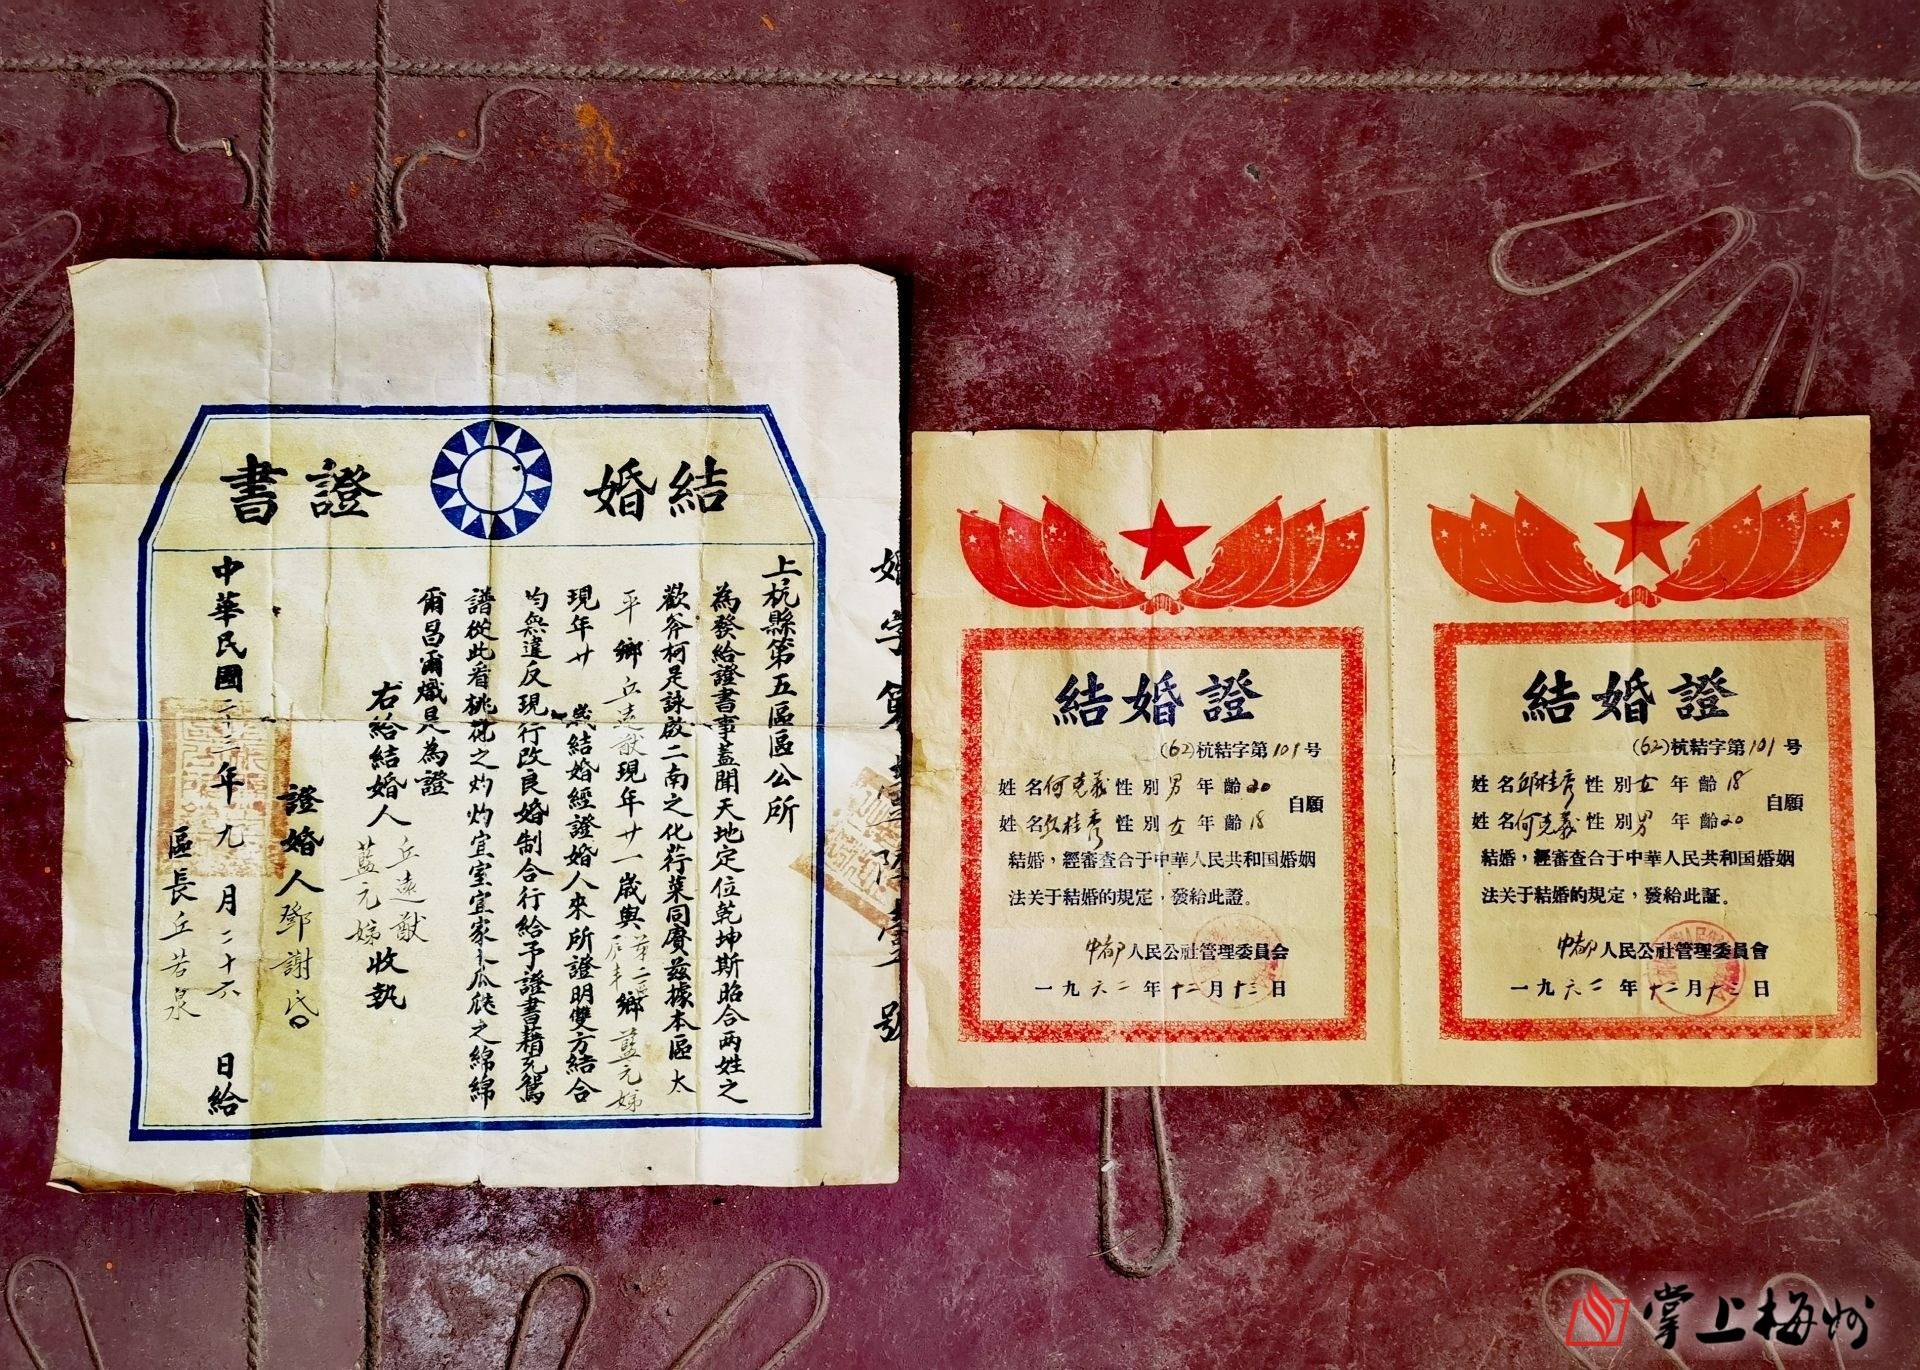 結婚證書
上杭縣第五區區公所
為發給證書事蓋聞天地定位乾坤斯昭合两姓之
歡斧柯是詠啟二南之化荇菜同賡茲據本區太
平鄉丘遠猷現年廿一歲與第二區鄉藍元娣
現年廿歲結婚經證婚人來所證明雙方結合
均無違反現行改良婚制合行給予證書藉充鴛
譜從此看桃花之灼灼宜室宜家卜瓜瓞之綿綿
爾昌爾熾具為證
右給結婚人丘遠猷藍元娣收執
證婚人鄧謝
區長丘若泉
中華民國二十三年九月二十六日給
婚字第號
結婚證
(62)杭結字第101号
姓名何克義性別男年齡20
姓名邱桂秀性別女年齡18
自願
結婚，經審查合于中華人民共和国婚姻
法关于結婚的規定，發給此證。
中都人民公社管理委員会
一九六二年十二月十三日
結婚證
(62)杭結字第101号
姓名邱桂秀性別女年齡18
姓名何克義性別男年齡20
自願
結婚，經審查合于中華人民共和国婚姻
法关于結婚的規定，發給此証。
中都人民公社管理委員會
一九六二年十二月十三日
掌上梅州